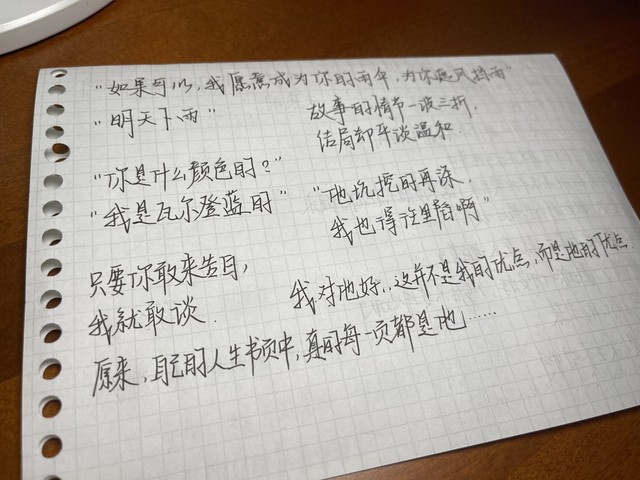 "如果可以,我愿意成为你的雨伞,为你遮风挡雨"
"明天下雨"
故事的情节一波三折,
结局却平淡温和.
"你是什么颜色的?"
"我是瓦尔登蓝的"
"她坑挖的再深,
我也得往里蹈啊"
只要你敢来告白,
我就敢谈.
我对她好..这并不是我的优点,而是她的优点
原来,自己的人生书页中,真的每一页都是她……